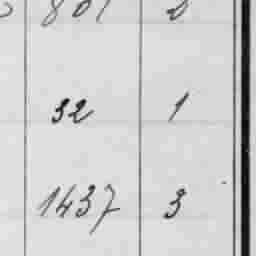 801 2
32 1
1437 3